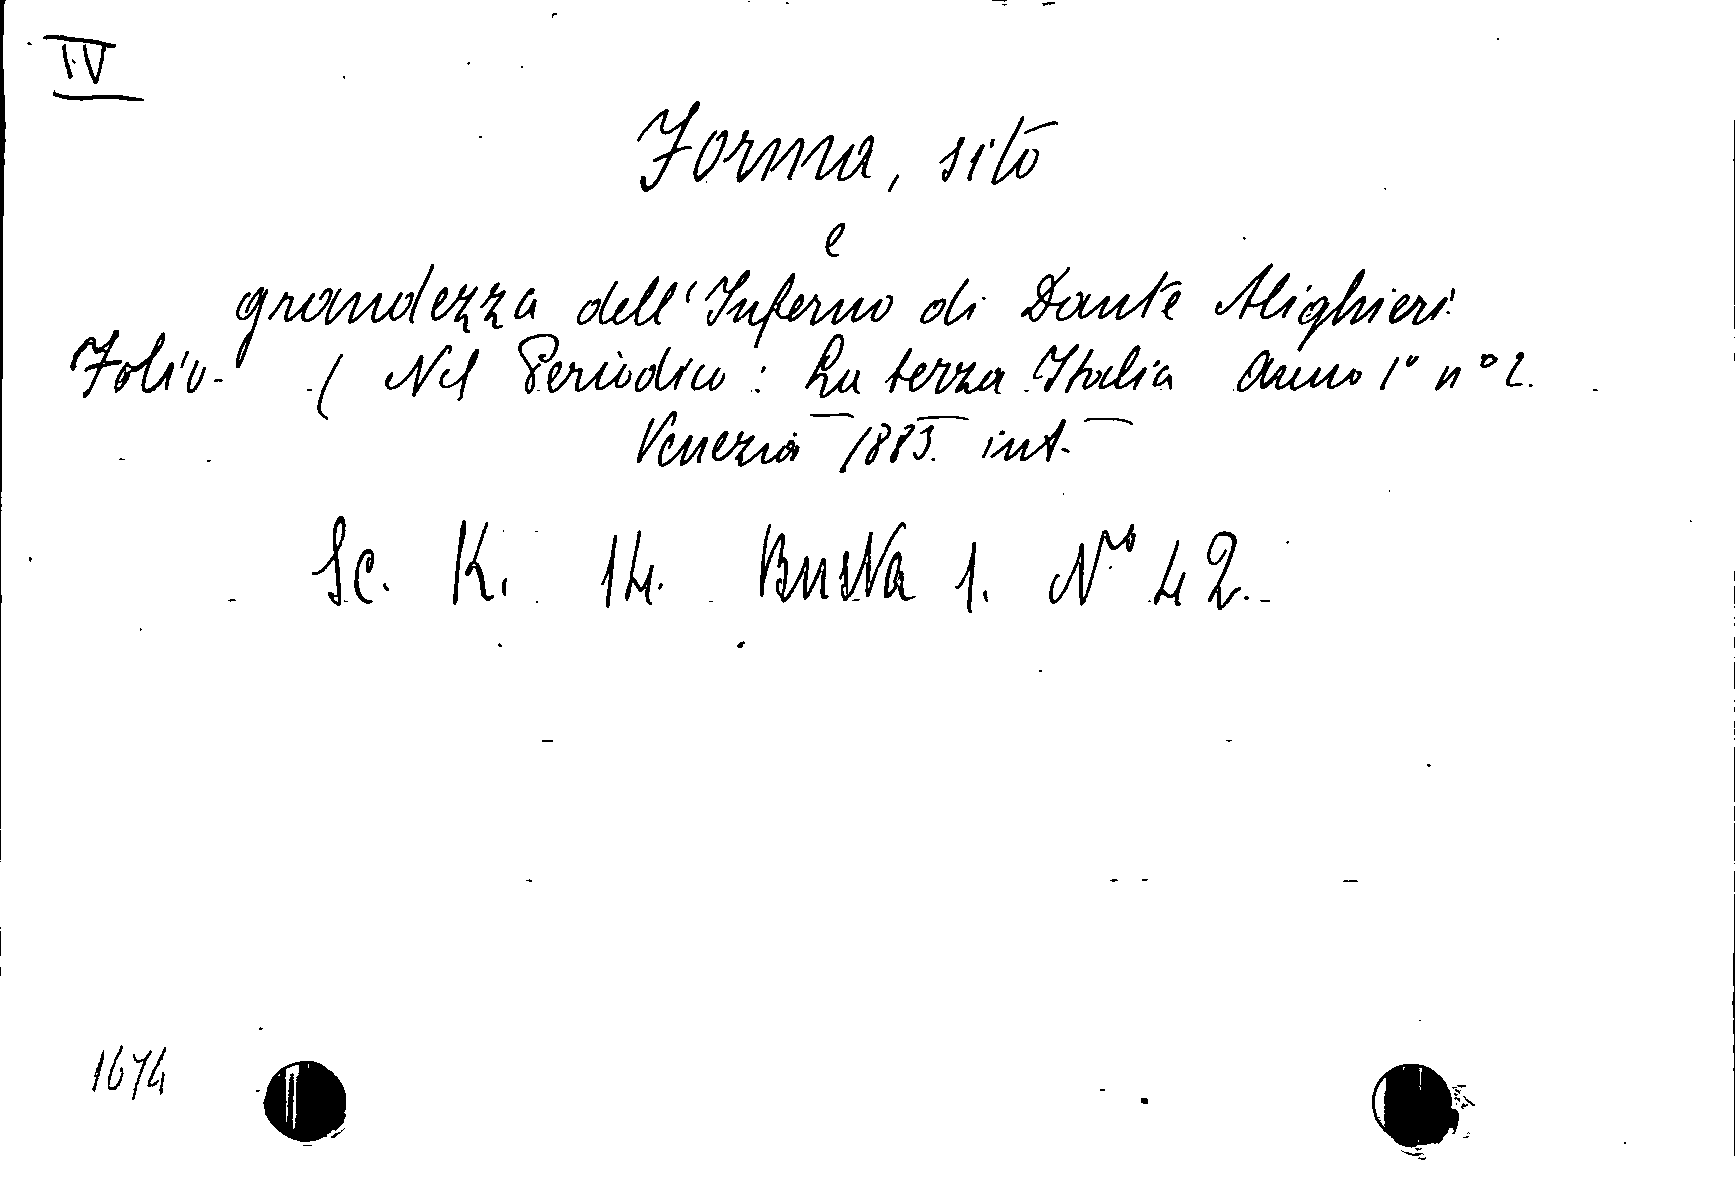 IV
Forma, sito
e
grandezza dell'Inferno di Dante Alighieri.
Folio. ( Nel Periodico: La terza Italia Anno 1° n° 2.
Venezia 1883. int.
Sc. K. 14. Busta 1. N° 42.
1674